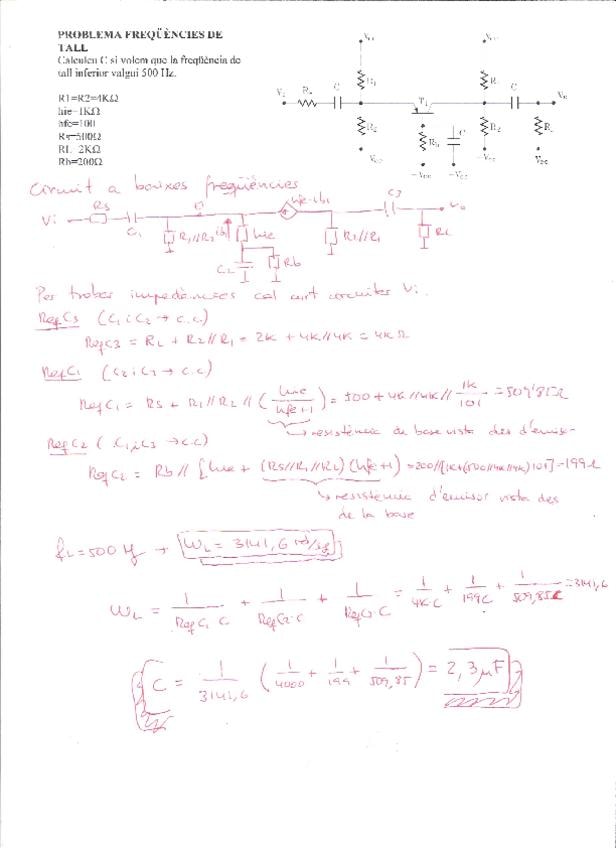 PROBLEMA FREQÜÈNCIES DE
TALL
Calculeu C si volem que la freqüència de
tall inferior valgui 500 Hz.
R1=R2=4KΩ
hie=1KΩ
hfe=100
Rs=500Ω
RL=2KΩ
Rb=200Ω
Vi Rs C R1 R2 T1 Rb C R1 R2 C Vo RL
Circuit a baixes freqüències
Vi Rs C1 R1//R2 ib1 hie C2 Rb hfe·ib1 R2//R1 C3 Vo RL
Per trobar impedàncies cal curt circuitar Vi.
Req C3 (C1 i C2 → c.c)
Req C3 = RL + R2//R1 = 2K + 4K//4K = 4K Ω
Req C1 (C2 i C3 → c.c)
Req C1 = Rs + R1//R2 // (hie/hfe+1) = 500 + 4K//4K// 1K/101 = 509'85Ω
→ resistència de base vista des d'emisor
Req C2 (C1 i C3 → c.c)
Req C2 = Rb // [hie + (Rs//R1//R2)(hfe+1)] = 200//[1K+(500//4K//4K)101] = 199Ω
→ resistencia d'emisor vista des
de la base
fL = 500 Hz → WL = 3141,6 rd/sg
WL = 1/Req C1·C + 1/Req C2·C + 1/Req C3·C = 1/4K·C + 1/199C + 1/509,85C = 3141,6
C = 1/3141,6 (1/4000 + 1/199 + 1/509,85) = 2,3μF